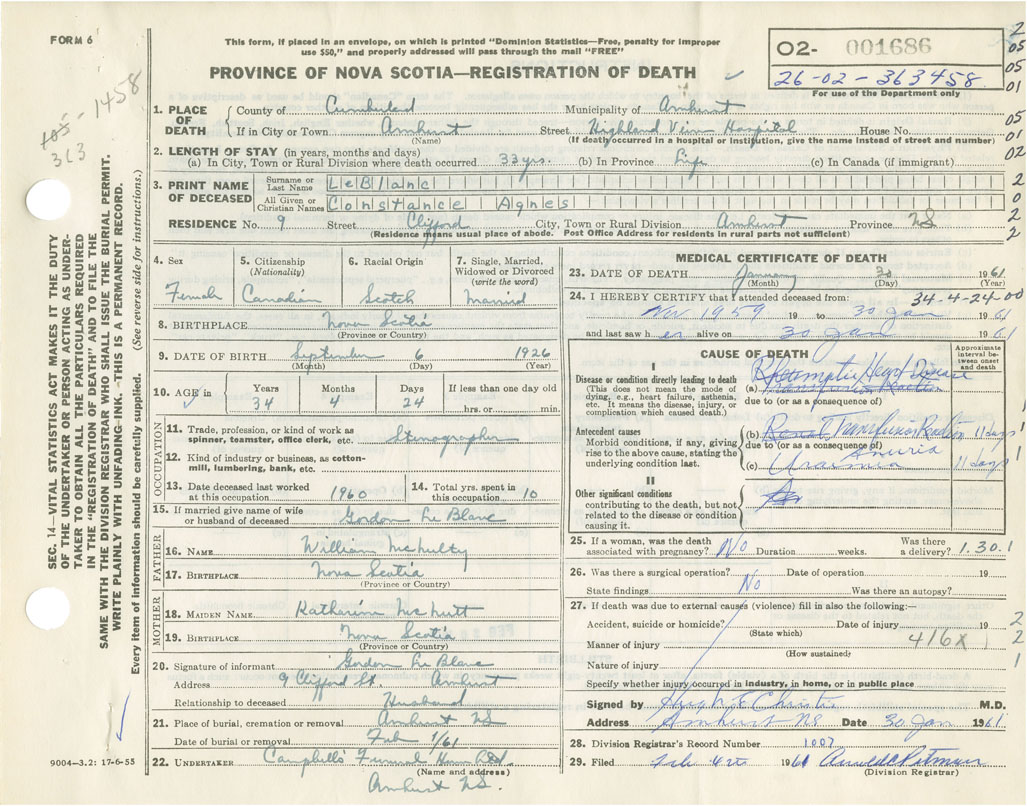 FORM 6
This form, if placed in an envelope, on which is printed "Dominion Statistics—Free, penalty for improper
use $50," and properly addressed will pass through the mail "FREE"
PROVINCE OF NOVA SCOTIA—REGISTRATION OF DEATH
O2- 001686
26-02-363458
For use of the Department only
1458
363
2
05
05
01
05
01
02
2
0
2
2
SEC. 14—VITAL STATISTICS ACT MAKES IT THE DUTY
OF THE UNDERTAKER OR PERSON ACTING AS UNDER-
TAKER TO OBTAIN ALL THE PARTICULARS REQUIRED
IN THE "REGISTRATION OF DEATH" AND TO FILE THE
SAME WITH THE DIVISION REGISTRAR WHO SHALL ISSUE THE BURIAL PERMIT.
WRITE PLAINLY WITH UNFADING INK.—THIS IS A PERMANENT RECORD.
Every item of information should be carefully supplied. (See reverse side for instructions.)
1. PLACE OF DEATH
County of Cumberland Municipality of Amherst
If in City or Town Amherst Street Highland View Hospital House No.
(Name) (If death occurred in a hospital or institution, give the name instead of street and number)
2. LENGTH OF STAY (in years, months and days)
(a) In City, Town or Rural Division where death occurred 33 yrs. (b) In Province Life (c) In Canada (if immigrant)
3. PRINT NAME OF DECEASED
Surname or Last Name LeBlanc
All Given or Christian Names Constance Agnes
RESIDENCE No. 9 Street Clifford City, Town or Rural Division Amherst Province NS
(Residence means usual place of abode. Post Office Address for residents in rural parts not sufficient)
4. Sex Female
5. Citizenship (Nationality) Canadian
6. Racial Origin Scotch
7. Single, Married, Widowed or Divorced (write the word) Married
8. BIRTHPLACE Nova Scotia
(Province or Country)
9. DATE OF BIRTH September 6 1926
(Month) (Day) (Year)
10. AGE Years 34 Months 4 Days 24 If less than one day old hrs. or min.
OCCUPATION
11. Trade, profession, or kind of work as spinner, teamster, office clerk, etc. Stenographer
12. Kind of industry or business, as cotton-mill, lumbering, bank, etc.
13. Date deceased last worked at this occupation 1960
14. Total yrs. spent in this occupation 10
15. If married give name of wife or husband of deceased Gordon Le Blanc
FATHER
16. NAME William McNulty
17. BIRTHPLACE Nova Scotia
(Province or Country)
MOTHER
18. MAIDEN NAME Katherin McNutt
19. BIRTHPLACE Nova Scotia
(Province or Country)
20. Signature of informant Gordon Le Blanc
Address 9 Clifford St. Amherst
Relationship to deceased Husband
21. Place of burial, cremation or removal Amherst NS
Date of burial or removal Feb 1/61
22. UNDERTAKER Campbell's Funeral Home
(Name and address)
Amherst NS.
9004—3.2: 17-6-55
MEDICAL CERTIFICATE OF DEATH
23. DATE OF DEATH January 30 1961
(Month) (Day) (Year)
34-4-24-00
24. I HEREBY CERTIFY that I attended deceased from:
Nov 1959 19 to 30 Jan 1961
and last saw her alive on 30 Jan 1961
CAUSE OF DEATH
Approximate interval between onset and death
I
Disease or condition directly leading to death
(This does not mean the mode of dying, e.g., heart failure, asthenia, etc. It means the disease, injury, or complication which caused death.)
(a) Heart Disease
due to (or as a consequence of)
Antecedent causes
Morbid conditions, if any, giving rise to the above cause, stating the underlying condition last.
(b) Renal Transfusion Reaction 11 days
due to (or as a consequence of) Anuria
(c) Uraemia 11 days
II
Other significant conditions
contributing to the death, but not related to the disease or condition causing it.
1
1
1
25. If a woman, was the death associated with pregnancy? No Duration weeks. Was there a delivery? 1.30.1
26. Was there a surgical operation? No Date of operation 19
State findings Was there an autopsy?
27. If death was due to external causes (violence) fill in also the following:—
Accident, suicide or homicide? Date of injury 19
(State which)
Manner of injury 416X
(How sustained)
Nature of injury
Specify whether injury occurred in industry, in home, or in public place
2
2
1
Signed by Hugh E Christie M.D.
Address Amherst NS Date 30 Jan 1961
28. Division Registrar's Record Number 1007
29. Filed Feb 4th 1961
(Division Registrar)